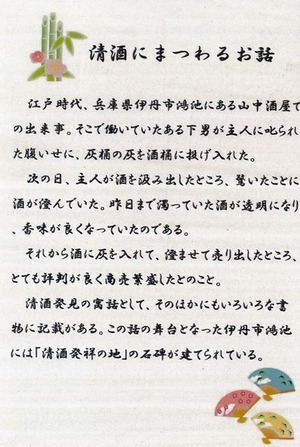 清酒にまつわるお話
江戸時代、兵庫県伊丹市鴻池にある山中酒屋で
の出来事。そこで働いていたある下男が主人に叱られ
た腹いせに、灰桶の灰を酒桶に投げ入れた。
次の日、主人が酒を汲み出したところ、驚いたことに
酒が澄んでいた。昨日まで濁っていた酒が透明になり
、香味が良くなっていたのである。
それから酒に灰を入れて、澄ませて売り出したところ、
とても評判が良く商売繁盛したとのこと。
清酒発見の寓話として、そのほかにもいろいろな書
物に記載がある。この話の舞台となった伊丹市鴻池
には「清酒発祥の地」の石碑が建てられている。